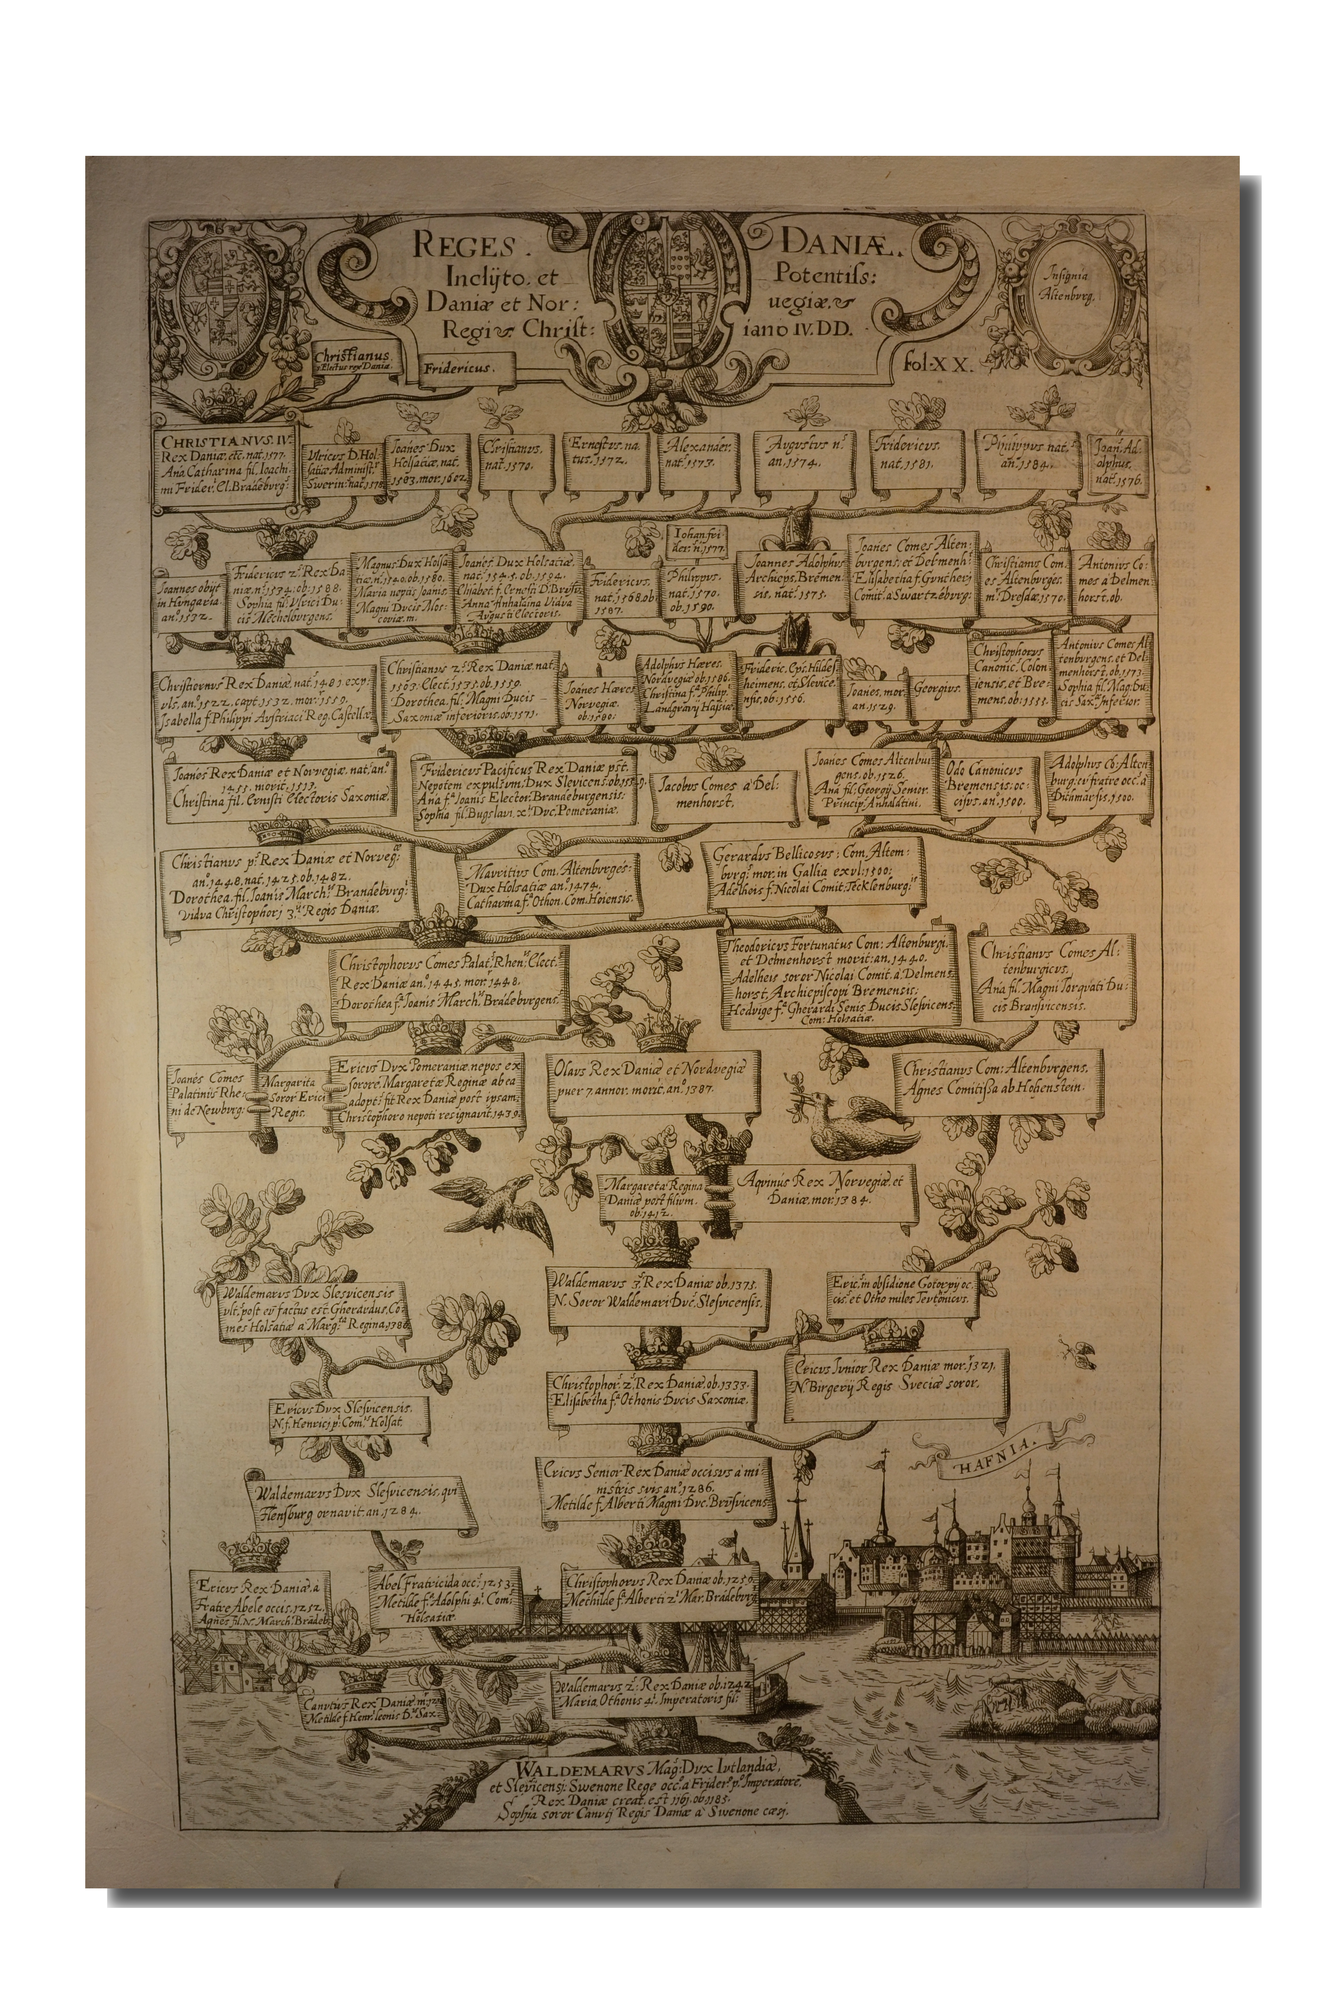 REGES . DANIÆ.
Inclÿto. et Potentiss:
Daniæ et Nor: uegiæ,
Regi Christ: iano IV. DD.
fol. XX.
Insignia
Altenburg.
Christianus.
Electus rex Daniæ.
Fridericus.
CHRISTIANVS. IV.
Rex Daniæ, etc. nat. 1577.
Ana Catharina fil. Ioachi-
mi Frider. El. Brãdeburg:
Vlricus D. Hol-
satiæ Administr
Swerin: nat. 1578
Joanes Dux
Holsatiæ, nat.
1583. mor. 1602
Christianus.
nat. 1570.
Ernestus. na.
tus. 1572.
Alexander.
nat. 1573.
Avgvstvs n:
an. 1574.
Fridericvs.
nat. 1581.
Philippvs nat.
an. 1584.
Joan. Ad-
olphus.
nat. 1576.
Joannes obijt
in Hungaria
an. 1532.
Fridericus 2. Rex Da
niæ n: 1534. ob. 1588.
Sophia fil. Vlrici Du-
cis Mechelburgens.
Magnus Dux Holsa
tiæ. n. 1540. ob. 1580.
Maria nepos Joanis
Magni Ducis Mos-
coviæ. m.
Joanes Dux Holsatiæ.
nat. 1545. ob. 1594.
Elisabet. f. Ernesti D. Brusv.
Anna Anhalaina Vidva
Avgvsti Electoris.
Fridericus.
nat. 1568. ob
1587.
Iohan fri-
der. n. 1577.
Philippus.
nat. 1570.
ob. 1590.
Joannes Adolphus
Archieps. Bremen-
sis. nat. 1575.
Joanes Comes Alten-
burgens. et Delmenh:
Elisabetha f. Guntherj
Comit. a Swartzeburg.
Christianus Com-
es Altenburges.
m. Dresdæ. 1570.
Antonius Co-
mes a Delmen
horst, ob.
Christiernvs Rex Daniæ nat. 1481 exp:
vls. an. 1522. capt. 1532. mor. 1559.
Isabella f. Philippi Avstriaci Reg. Castellæ
Christianvs 3. Rex Daniæ nat.
1503. Elect. 1535. ob. 1559.
Dorothea. fil. Magni Ducis
Saxoniæ inferioris. ob. 1571.
Joanes Hæres
Norvegiæ.
ob. 1580.
Adolphus Hæres.
Nordvegiæ ob. 1586.
Christina f. Philip.
Landgravij Hassiæ.
Frideric. Eps. Hildes
heimens. et Slevice-
nsis. ob. 1556.
Joanes. mor.
an. 1529.
Georgius.
Christophorvs
Canonic. Colon
iensis. et Bre-
mens. ob. 1555.
Antonivs Comes Al
tenburgens. et Del-
menhorst. ob. 1573.
Sophia fil. Mag: Du-
cis Sax. Inferior.
Joanes Rex Daniæ et Norvegiæ. nat. an.
1455. morit. 1513.
Christina fil. Ernesti Electoris Saxoniæ.
Fridericus Pacificus Rex Daniæ pst
Nepotem expulsvm. Dux Slevicens. ob. 1533.
Ana f. Joanis Elector. Brandeburgensis:
Sophia fil. Bugslavi. x. Dvc. Pomeraniæ.
Jacobus Comes a Del-
menhorst.
Joanes Comes Altenbur
gens. ob. 1526.
Ana fil: Georgij Senior.
Princip: Anhaldtini.
Odo Canonicvs
Bremensis. oc-
cisvs. an. 1500.
Adolphus Co: Alten
burg. cv fratre occ. a
Ditmarsis. 1500.
Christianvs p. Rex Daniæ et Norveg:
an. 1448. nat. 1425. ob. 1482.
Dorothea. fil. Joanis March. Brandeburg:
vidva Christophorj 3. Regis Daniæ.
Mavritivs Com. Altenburges-
Dux Holsatiæ an. 1474.
Catharina f. Othon. Com. Hoiensis.
Gerardvs Bellicosvs: Com. Altem-
burg: mor. in Gallia exvl. 1500:
Adelheis f. Nicolai Comit. Tecklenburg.
Christophorvs Comes Palat. Rhen. Elect.
Rex Daniæ an. 1445. mor. 1448.
Dorothea f. Joanis March. Brãdeburgens.
Theodoricvs Fortunatus Com: Altenburgi.
et Delmenhorst morit: an. 1440.
Adelheis soror Nicolai Comit. a Delmens
horst, Archiepiscopi Bremensis:
Hedvige f. Gherardi Senis Ducis Slesvicens.
Com: Holsatiæ.
Christianvs Comes Al-
tenburgicvs.
Ana fil. Magni Torqvati Du-
cis Brunsvicensis.
Joanes Comes
Palatinus Rhe-
ni de Newburg:
Margarita
soror Erici
Regis.
Ericvs Dvx Pomeraniæ. nepos ex
sorore. Margaretæ Reginæ ab ea
adopt. fit Rex Daniæ post ipsam;
Christophoro nepoti resignavit. 1439.
Olavs Rex Daniæ et Nordvegiæ
puer 7. annor. morit. an. 1387.
Christianvs Com: Altenburgens.
Agnes Comitissa ab Hohenstein.
Margareta Regina
Daniæ post filium.
ob. 1412.
Aqvinus Rex Norvegiæ et
Daniæ. mor. 1384.
Waldemarvs Dvx Slesvicensis
vlt. post eũ factus est Gherardus. Co-
mes Holsatiæ a Marg. Regina. 1386
Waldemarvs 3. Rex Daniæ ob. 1375.
N. Soror Waldemari Dvc. Slesvicensis.
Eric. in obsidione Gotorpij oc-
cis. et Otho miles Tevtonicvs.
Ericvs Dvx Slesvicensis.
N. f. Henrici p. Com. Holsat.
Christophor. 2. Rex Daniæ. ob. 1333.
Elisabetha f. Othonis Dvcis Saxoniæ.
Ericvs Ivnior Rex Daniæ mor. 1321.
N. Birgerij Regis Sveciæ soror.
HAFNIA.
Waldemarvs Dvx Slesvicensis, qvi
Flensburg ornavit. an. 1284.
Ericvs Senior Rex Daniæ occisvs a mi-
nistris svis an. 1286.
Metilde f. Alberti Magni Dvc. Brusvicens.
Ericvs Rex Daniæ. a
Fratre Abele occis. 1252.
Agnes fil. N. March. Brãdeb.
Abel Fratricida occ. 1253.
Metilde f. Adolphi 4. Com:
Holsatiæ
Christophorvs Rex Daniæ ob. 1259.
Mechilde f. Alberti 2. Mar. Brãdeburg
Canvtus Rex Daniæ.
Metilde f. Henr. leonis D. Sax.
Waldemarvs 2. Rex Daniæ ob. 1242
Maria. Othonis 4. Imperatoris fil:
WALDEMARVS Mag: Dvx Ivtlandiæ,
et Slevicensi: Swenone Rege occ. a Frider. p. Imperatore,
Rex Daniæ creat. est 1161. ob. 1185.
Sophia soror Canvtj Regis Daniæ a Swenone cæsi.